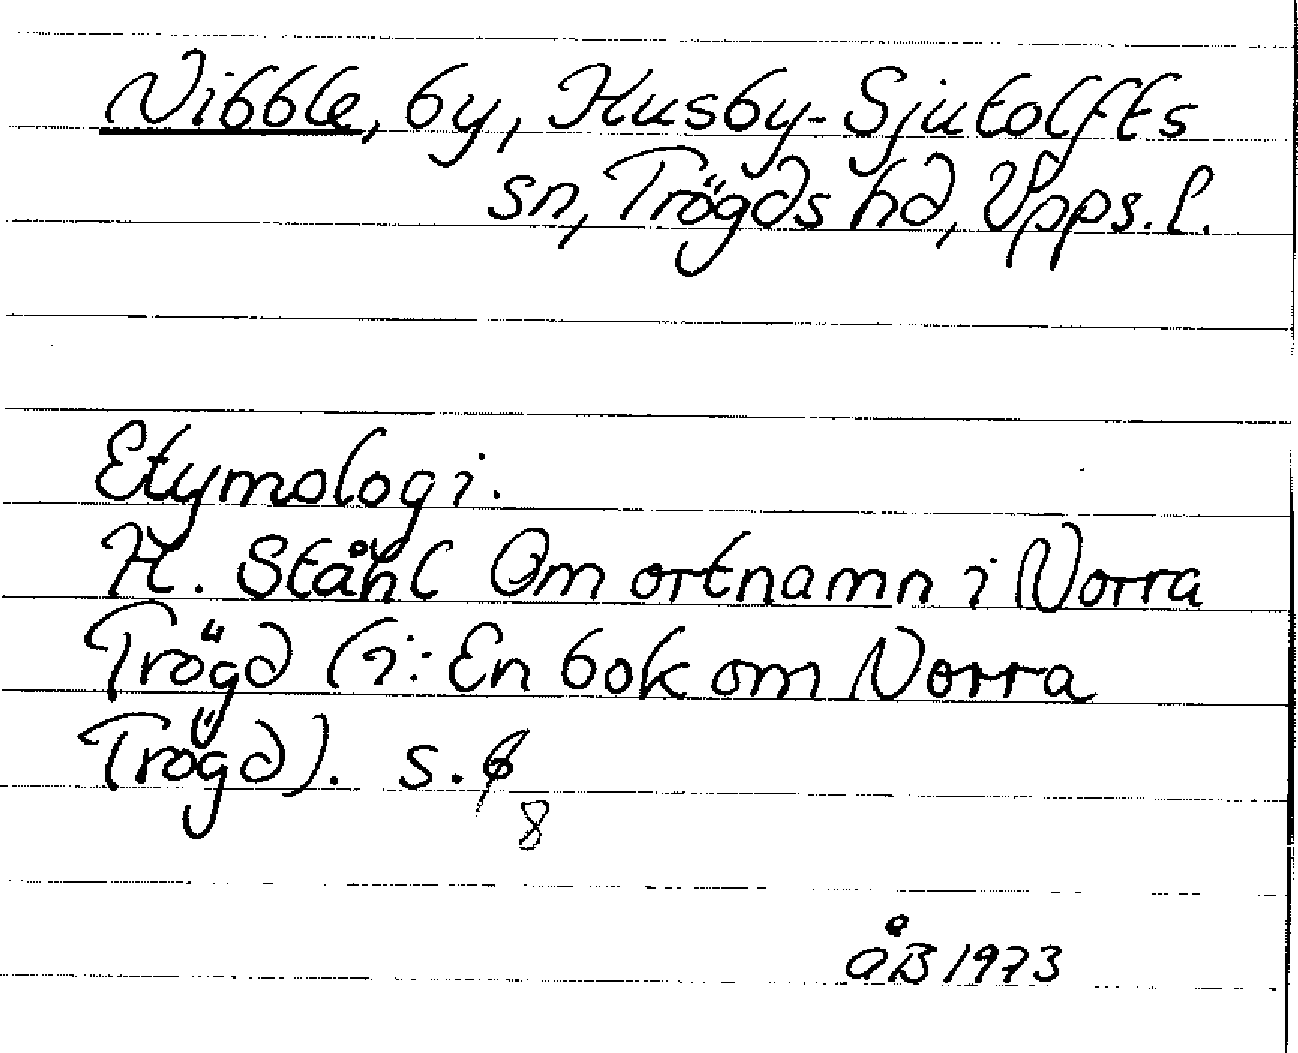 Nibble, by, Husby-Sjutolfts
sn, Trögds hd, Upps. l.
Etymologi.
H. Ståhl Om ortnamn i Norra
Trögd (i: En bok om Norra
Trögd). s. 6
8
ÅB 1973